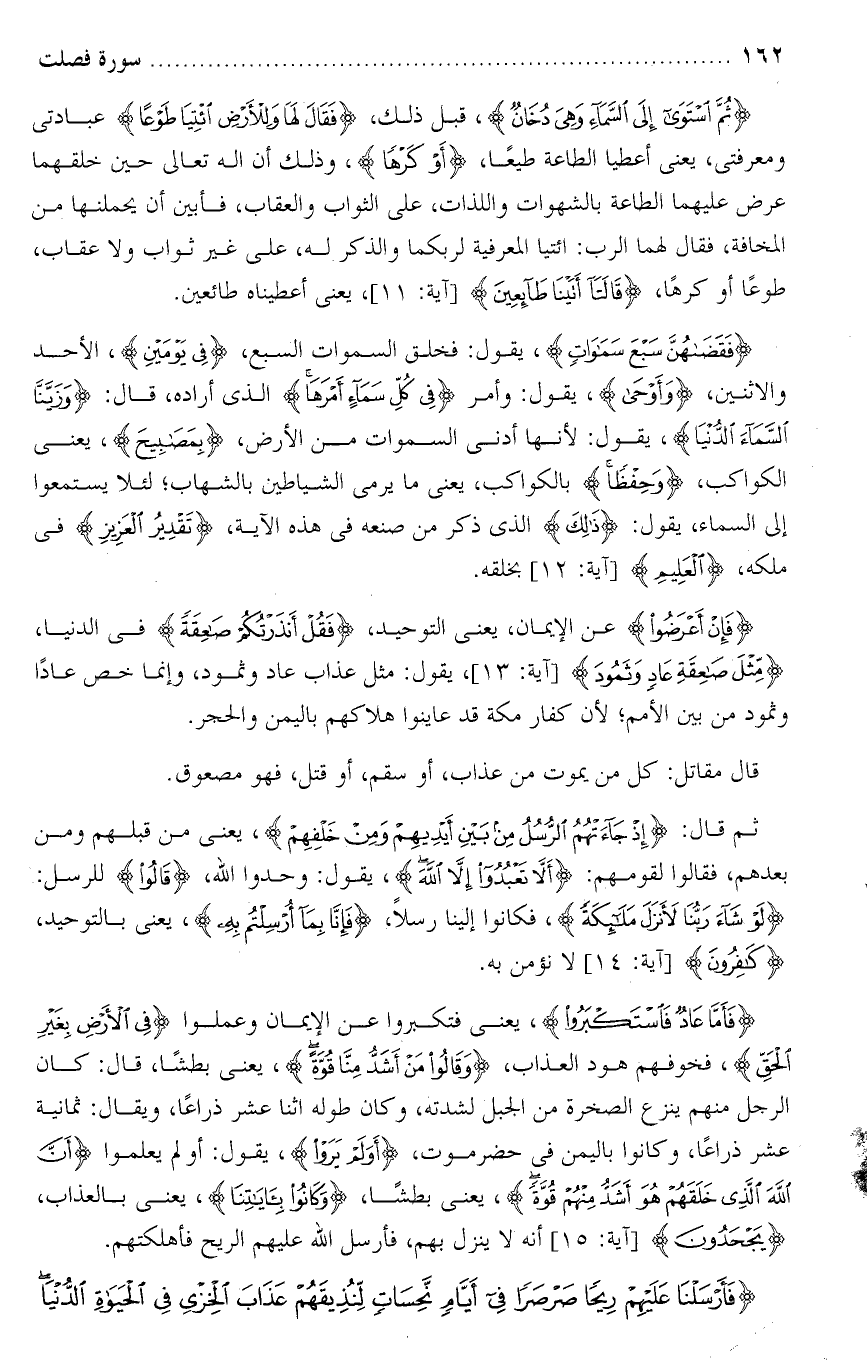 ١٦٢ ........................................ سورة فصلت
﴿ثُمَّ ٱسْتَوَىٰٓ إِلَى ٱلسَّمَآءِ وَهِىَ دُخَانٌ﴾، قبل ذلك، ﴿فَقَالَ لَهَا وَلِلْأَرْضِ ٱئْتِيَا طَوْعًا﴾ عبادتى
ومعرفتى، يعنى أعطيا الطاعة طيعًا، ﴿أَوْ كَرْهًا﴾، وذلك أن اله تعالى حين خلقهما
عرض عليهما الطاعة بالشهوات واللذات، على الثواب والعقاب، فأبين أن يحملنها من
المخافة، فقال لهما الرب: ائتيا المعرفية لربكما والذكر له، على غير ثواب ولا عقاب،
طوعًا أو كرهًا، ﴿قَالَتَآ أَتَيْنَا طَآئِعِينَ﴾ [آية: ١١]، يعنى أعطيناه طائعين.
﴿فَقَضَىٰهُنَّ سَبْعَ سَمَٰوَاتٍ﴾، يقول: فخلق السموات السبع، ﴿فِى يَوْمَيْنِ﴾، الأحد
والاثنين، ﴿وَأَوْحَىٰ﴾، يقول: وأمر ﴿فِى كُلِّ سَمَآءٍ أَمْرَهَا ۚ﴾ الذى أراده، قال: ﴿وَزَيَّنَّا
ٱلسَّمَآءَ ٱلدُّنْيَا﴾، يقول: لأنها أدنى السموات من الأرض، ﴿بِمَصَٰبِيحَ﴾، يعنى
الكواكب، ﴿وَحِفْظًا ۚ﴾ بالكواكب، يعنى ما يرمى الشياطين بالشهاب؛ لئلا يستمعوا
إلى السماء، يقول: ﴿ذَٰلِكَ﴾ الذى ذكر من صنعه فى هذه الآية، ﴿تَقْدِيرُ ٱلْعَزِيزِ﴾ فى
ملكه، ﴿ٱلْعَلِيمِ﴾ [آية: ١٢] بخلقه.
﴿فَإِنْ أَعْرَضُوا۟﴾ عن الإيمان، يعنى التوحيد، ﴿فَقُلْ أَنذَرْتُكُمْ صَٰعِقَةً﴾ فى الدنيا،
﴿مِّثْلَ صَٰعِقَةِ عَادٍ وَثَمُودَ﴾ [آية: ١٣]، يقول: مثل عذاب عاد وثمود، وإنما خص عادًا
وثمود من بين الأمم؛ لأن كفار مكة قد عاينوا هلاكهم باليمن والحجر.
قال مقاتل: كل من يموت من عذاب، أو سقم، أو قتل، فهو مصعوق.
ثم قال: ﴿إِذْ جَآءَتْهُمُ ٱلرُّسُلُ مِنۢ بَيْنِ أَيْدِيهِمْ وَمِنْ خَلْفِهِمْ﴾، يعنى من قبلهم ومن
بعدهم، فقالوا لقومهم: ﴿أَلَّا تَعْبُدُوٓا۟ إِلَّا ٱللَّهَ ۖ﴾، يقول: وحدوا الله، ﴿قَالُوا۟﴾ للرسل:
﴿لَوْ شَآءَ رَبُّنَا لَأَنزَلَ مَلَٰٓئِكَةً﴾، فكانوا إلينا رسلاً، ﴿فَإِنَّا بِمَآ أُرْسِلْتُم بِهِۦ﴾، يعنى بالتوحيد،
﴿كَٰفِرُونَ﴾ [آية: ١٤] لا نؤمن به.
﴿فَأَمَّا عَادٌ فَٱسْتَكْبَرُوا۟﴾، يعنى فتكبروا عن الإيمان وعملوا ﴿فِى ٱلْأَرْضِ بِغَيْرِ
ٱلْحَقِّ﴾، فخوفهم هود العذاب، ﴿وَقَالُوا۟ مَنْ أَشَدُّ مِنَّا قُوَّةً ۖ﴾، يعنى بطشًا، قال: كان
الرجل منهم ينزع الصخرة من الجبل لشدته، وكان طوله اثنا عشر ذراعًا، ويقال: ثمانية
عشر ذراعًا، وكانوا باليمن فى حضرموت، ﴿أَوَلَمْ يَرَوْا۟﴾، يقول: أو لم يعلموا ﴿أَنَّ
ٱللَّهَ ٱلَّذِى خَلَقَهُمْ هُوَ أَشَدُّ مِنْهُمْ قُوَّةً ۖ﴾، يعنى بطشًا، ﴿وَكَانُوا۟ بِـَٔايَٰتِنَا﴾، يعنى بالعذاب،
﴿يَجْحَدُونَ﴾ [آية: ١٥] أنه لا ينزل بهم، فأرسل الله عليهم الريح فأهلكتهم.
﴿فَأَرْسَلْنَا عَلَيْهِمْ رِيحًا صَرْصَرًا فِىٓ أَيَّامٍ نَّحِسَاتٍ لِّنُذِيقَهُمْ عَذَابَ ٱلْخِزْىِ فِى ٱلْحَيَوٰةِ ٱلدُّنْيَا ۖ